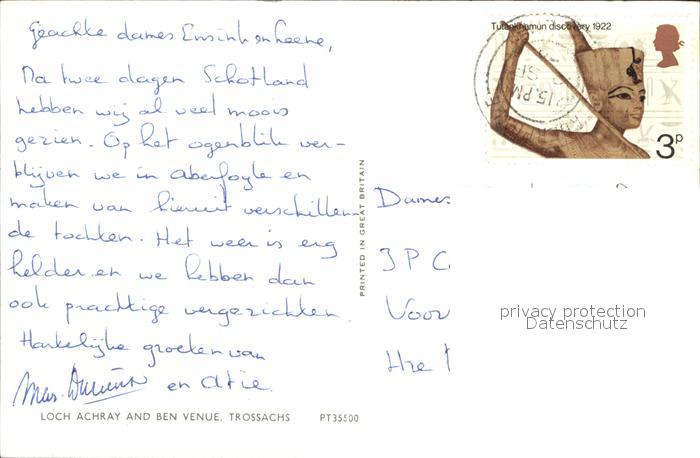 Geachte dames Ensink en Leene,
Na twee dagen Schotland
hebben wij al veel moois
gezien. Op het ogenblik ver-
blijven we in Aberfoyle en
maken van hieruit verschillen-
de tochten. Het weer is erg
helder en we hebben dan
ook prachtige vergezichten.
Hartelijke groeten van
en Atie.
LOCH ACHRAY AND BEN VENUE, TROSSACHS PT35500
PRINTED IN GREAT BRITAIN
Tutankhamun discovery 1922
3P
15 PM
Dames
3 P C
Voor
privacy protection
Datenschutz